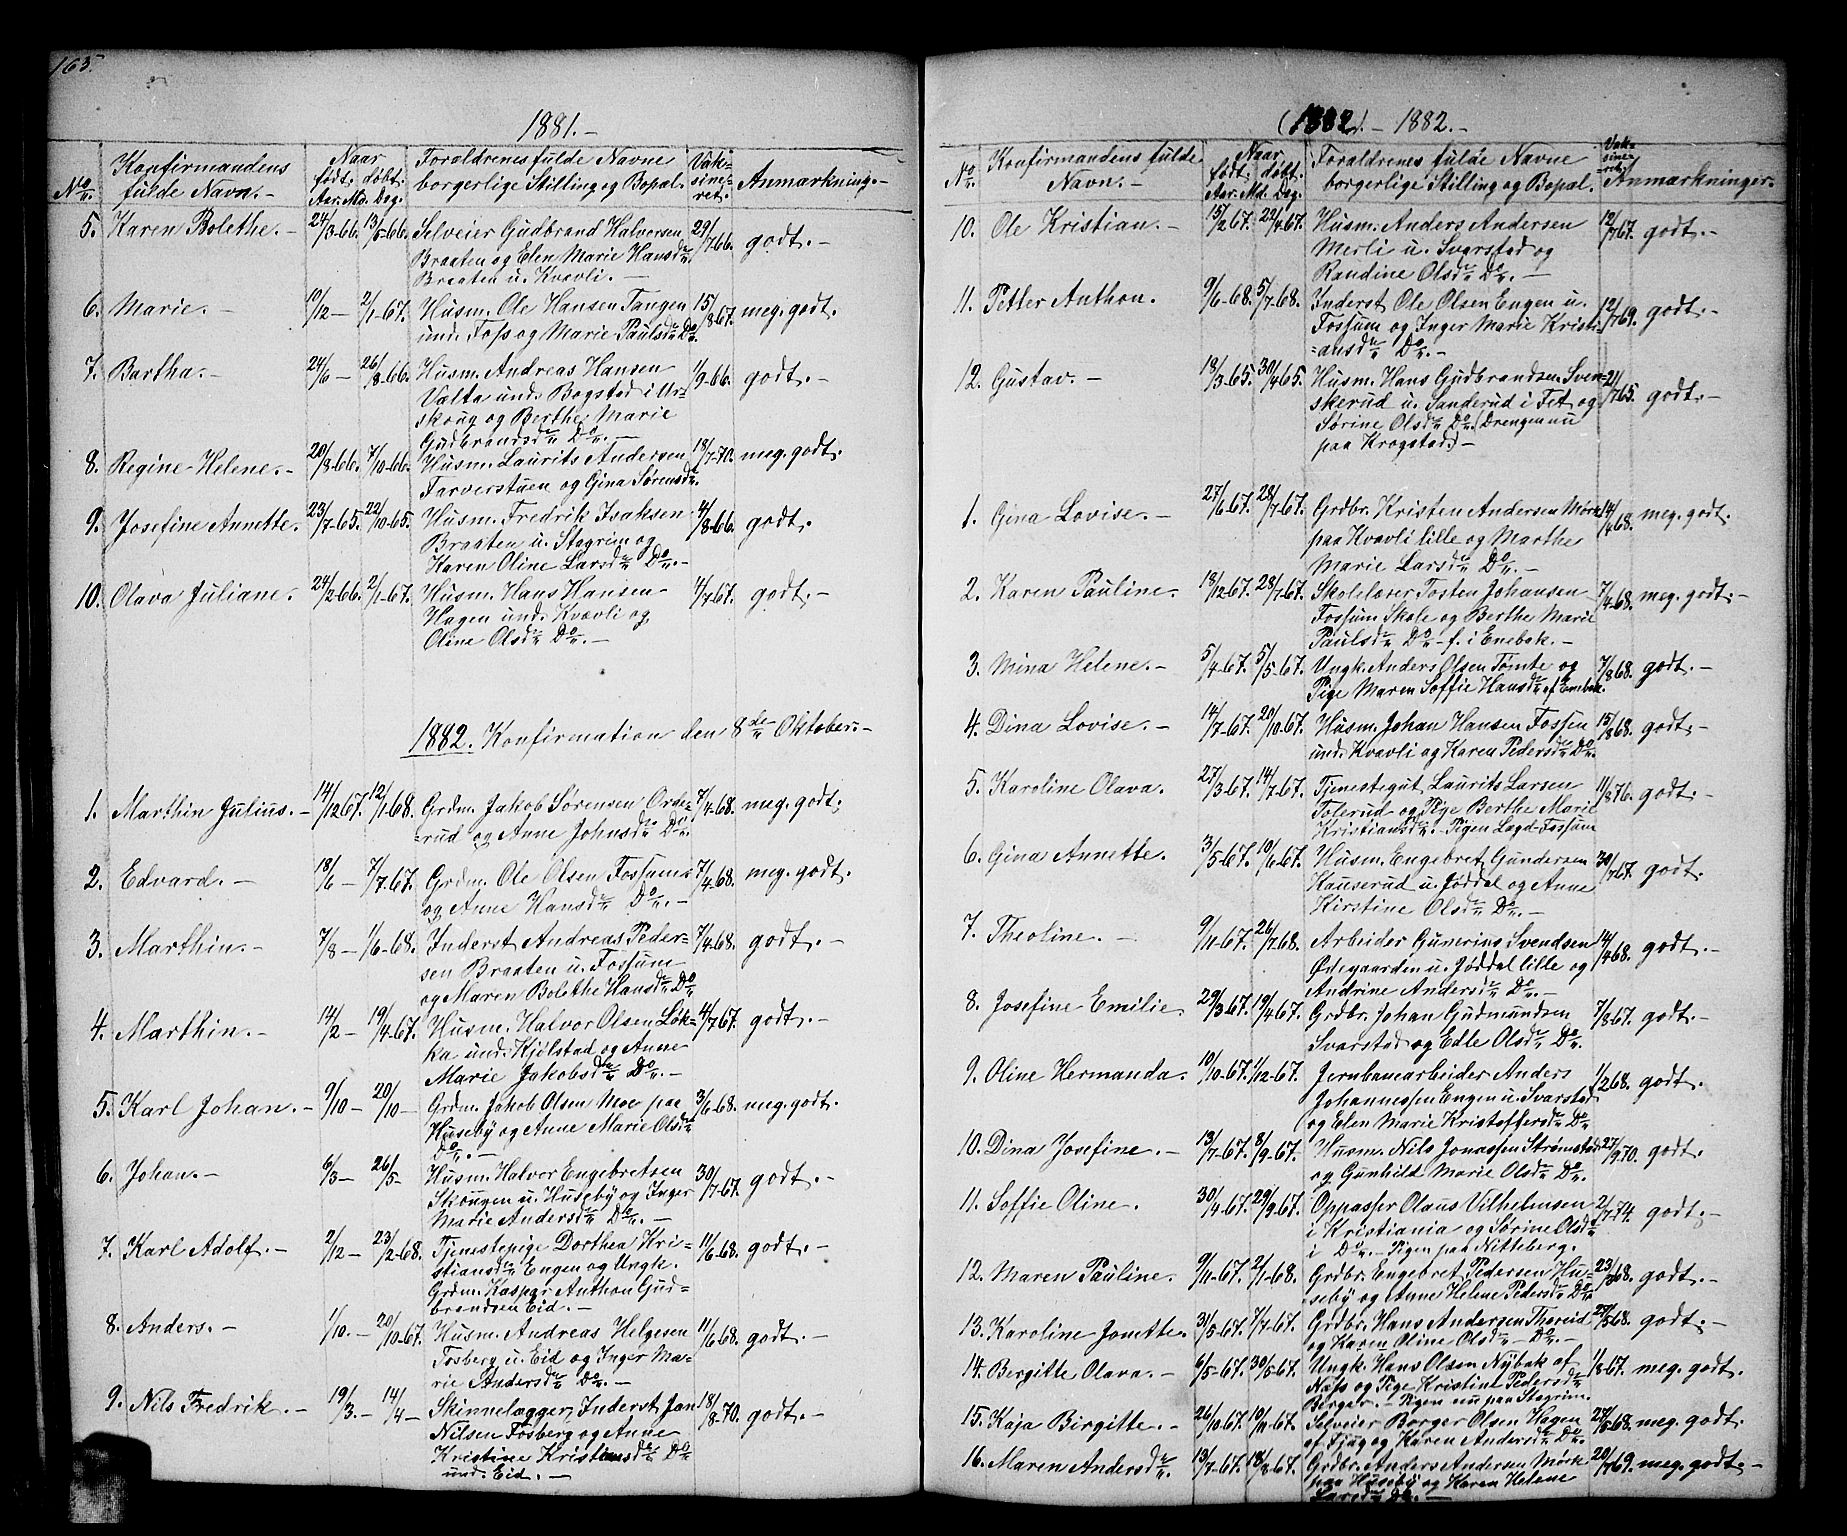 165.
1881.-
No. Konfirmandens fulde Navn.- Naar født. døbt. Aar. Md. Dag. Forældrenes fulde Navne borgerlige Stilling og Bopæl. Vaksineret. Anmærkning.-
5. Karen Bolethe.- 24/3-66. 13/5-66. Selveier Gudbrand Halvorsen 29/7-66. godt.-
Braaten og Elen Marie Hansdr.
Braaten u. Kvævli.-
6. Marie.- 10/12- 2/1-67. Husm. Ole Hansen Tangen 15/8-67. meg. godt.
und. Foss og Marie Paulsdr. Do.
7. Bertha.- 24/6- 26/8-66. Husm. Andreas Hansen 1/9-66. godt.-
Valta und. Bogstad i Ur-
skoug og Berthe Marie
Gudbrandsdr. Do.-
8. Regine Helene.- 20/8-66. 7/10-66. Husm. Laurits Andersen 18/7-70. meg. godt.
Farverstuen og Gina Sørensdr.
9. Josefine Annette. 23/7-65. 22/10-65. Husm. Fredrik Isaksen 4/8-66. godt.
Braaten u. Stegrim og
Karen Oline Larsdr. Do.-
10. Olava Juliane. 24/2-66. 2/1-67. Husm. Hans Hansen 4/7-67. godt.-
Hagen und. Kvævli og
Oline Olsdr. Do.-
1882. Konfirmation den 8de Oktober.-
1. Marthin Julius.- 14/12 67. 12/1-68. Grdm. Jakob Sørensen Orde- 7/4-68. meg. godt.
=rud og Anne Johnsdr. Do.
2. Edvard.- 18/6- 7/7-67. Grdm. Ole Olsen Fossum 7/4-68. meg. godt.
og Anne Hansdr. Do.-
3. Marthin.- 7/8- 1/6-68. Inderst Andreas Peder- 7/4-68. godt.-
sen Braaten u. Fossum
og Maren Bolethe Hansdr. Do
4. Marthin.- 14/2- 19/4-67. Husm. Halvor Olsen Løk- 4/7-67. godt.-
ka und. Kjølstad og Anne
Marie Jakobsdr. Do.-
5. Karl Johan.- 9/10- 20/10- Grdm. Jakob Olsen Moe paa 3/6-68. meg. godt.
Huseby og Anne Marie Olsdr.
Do.-
6. Johan.- 6/3- 26/5- Husm. Halvor Engebretsen 30/7-67. godt.-
Skougen u. Huseby og Inger
Marie Andersdr. Do.-
7. Karl Adolf.- 2/12- 23/2-68. Tjenestepige Dorthea Kri- 11/6-68. godt.-
stiansdr. Engen og Ungk.
Grdm. Kasper Anthon Gud-
brandsen Eid.-
8. Anders.- 1/10.- 20/10-67. Husm. Andreas Helgesen 11/6-68. godt.-
Fosberg u. Eid og Inger Ma-
rie Andersdr. Do.-
9. Nils Fredrik.- 19/3.- 14/4- Skinnelægger, Inderst Jan 18/8-70. godt.-
Nilsen Fosberg og Anne
Kristine Kristiansdr. Do
und. Eid.-
1882.- 1882.-
No. Konfirmandens fulde Navn.- Naar født. døbt. Aar. Md. Dag. Forældrenes fulde Navne borgerlige Stilling og Bopæl. Vaksineret. Anmærkninger.
10. Ole Kristian.- 15/2 67. 22/4-67. Husm. Anders Andersen 12/7 67. godt.-
Merli u. Svarstad og
Randine Olsdr. Do.-
11. Petter Anthon. 9/6-68. 5/7-68. Inderst Ole Olsen Engen u. 12/7 69. godt.-
Fossum og Inger Marie Kristi-
=ansdr. Do.-
12. Gustav.- 18/3-65. 30/4-65. Husm. Hans Gudbrandsen Sven- 21/7 65. godt.-
skerud u. Sanderud i Fet og
Sørine Olsdr. Do. (Drengen nu
paa Krogstad)-
1. Gina Lovise.- 27/6-67. 28/7-67. Grdbr. Kristen Andersen Mørk 14/4 68. meg. godt.
paa Kvævli lille og Marthe
Marie Larsdr. Do.-
2. Karen Pauline.- 18/12-67. 28/7-67. Skolelærer Tosten Johansen 7/4-68. meg. godt.-
Fossum Skole og Berthe Marie
Paulsdr. Do- f. i Enebak.-
3. Mina Helene.- 5/4-67. 5/5-67. Ungk. Anders Olsen Tømte og 7/8 68. godt.-
Pige Maren Soffie Hansdr. af Enebak.
4. Dina Lovise.- 14/7-67. 20/10-67. Husm. Johan Hansen Fossen 15/8 68. godt.-
und. Kvævli og Karen Pedersdr. Do.
5. Karoline Olava. 27/3-67. 14/7-67. Tjenestegut Laurits Larsen 11/8 76. godt.-
Tolerud og Pige Berthe Marie
Kristiansdr.- Pigen Lagd-Fossum
6. Gina Annette. 3/5-67. 10/6-67. Husm. Engebret Gundersen 30/7 67. godt.
Hauserud u. Jøddal og Anne
Kirstine Olsdr. Do.-
7. Theoline.- 9/11-67. 26/7-68. Arbeider Gunerius Svendsen 14/4 68. godt.-
Ødegaarden u. Jøddal lille og
Andrine Andersdr. Do.-
8. Josefine Emilie. 29/3-67. 19/4-67. Grdbr. Johan Gudmundsen 7/8-67. godt.-
Svarstad og Edle Olsdr. Do.
9. Oline Hermanda. 10/10-67. 1/12-67. Jernbanearbeider Anders 1/2 68. godt.-
Johannessen Engen u. Svarstad
og Elen Marie Kristoffersdr. Do
10. Dina Josefine.- 13/7-67. 8/9-67. Husm. Nils Jonassen Strømstad 27/9 70. godt.
og Gunhild Marie Olsdr. Do.
11. Soffie Oline. 30/4-67. 29/9-67. Oppasser Olaus Vilhelmsen 2/7-74. godt.-
i Kristiania og Sørine Olsdr.
i Do.- Pigen paa Nitteberg.
12. Maren Pauline. 9/11-67. 2/1-68. Grdbr. Engebret Pedersen Hu- 23/5 68. godt.-
seby og Anne Helene Pedersdr. Do
13. Karoline Jonette. 31/5-67. 7/7-67. Grdbr. Hans Andersen Therud 27/5 68. godt.-
og Karen Oline Olsdr.- Do.-
14. Bergitte Olava.- 6/5-67. 30/5-67. Ungk. Hans Olsen Nybak af 1/8-67. meg. godt.
Næss og Pige Kristine Pedersdr.
Berger.- Pigen nu paa Stegrim.
15. Kaja Birgitte.- 26/10-67. 10/11-67. Selveier Borger Olsen Hagen 27/5 68. meg. godt.
af Tjug og Karen Andersdr. Do.
16. Maren Andersdr. 13/7-67. 18/8-67. Grdbr. Anders Andersen Mørk 20/7 69. meg. godt.-
paa Huseby og Karen Helene
Larsdr. Do.-